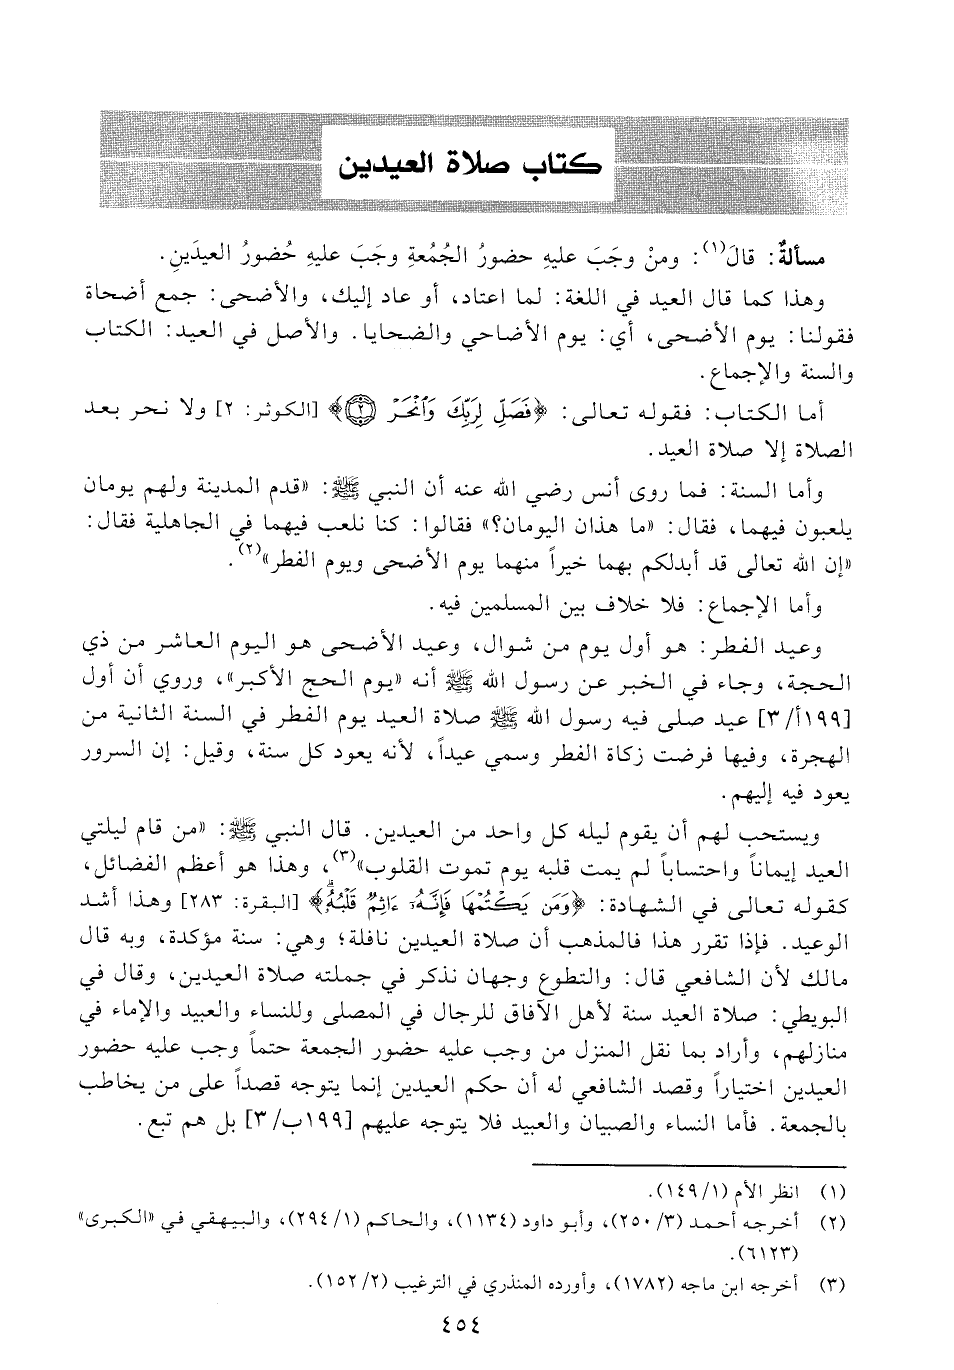 كتاب صلاة العيدين
مسألةٌ: قالَ(١): ومنْ وجَبَ عليهِ حضورُ الجُمُعةِ وجَبَ عليهِ حُضورُ العيدَينِ.
وهذا كما قال العيد في اللغة: لما اعتاد، أو عاد إليك، والأضحى: جمع أضحاة
فقولنا: يوم الأضحى، أي: يوم الأضاحي والضحايا. والأصل في العيد: الكتاب
والسنة والإجماع.
أما الكتاب: فقوله تعالى: ﴿فَصَلِّ لِرَبِّكَ وَٱنْحَرْ ۝٢﴾ [الكوثر: ٢] ولا نحر بعد
الصلاة إلا صلاة العيد.
وأما السنة: فما روى أنس رضي الله عنه أن النبي ﷺ: «قدم المدينة ولهم يومان
يلعبون فيهما، فقال: «ما هذان اليومان؟» فقالوا: كنا نلعب فيهما في الجاهلية فقال:
«إن الله تعالى قد أبدلكم بهما خيراً منهما يوم الأضحى ويوم الفطر»(٢).
وأما الإجماع: فلا خلاف بين المسلمين فيه.
وعيد الفطر: هو أول يوم من شوال، وعيد الأضحى هو اليوم العاشر من ذي
الحجة، وجاء في الخبر عن رسول الله ﷺ أنه «يوم الحج الأكبر»، وروي أن أول
[١٩٩أ/ ٣] عيد صلى فيه رسول الله ﷺ صلاة العيد يوم الفطر في السنة الثانية من
الهجرة، وفيها فرضت زكاة الفطر وسمي عيداً، لأنه يعود كل سنة، وقيل: إن السرور
يعود فيه إليهم.
ويستحب لهم أن يقوم ليله كل واحد من العيدين. قال النبي ﷺ: «من قام ليلتي
العيد إيماناً واحتساباً لم يمت قلبه يوم تموت القلوب»(٣)، وهذا هو أعظم الفضائل،
كقوله تعالى في الشهادة: ﴿وَمَن يَكْتُمْهَا فَإِنَّهُۥ ءَاثِمٌ قَلْبُهُۥۗ﴾ [البقرة: ٢٨٣] وهذا أشد
الوعيد. فإذا تقرر هذا فالمذهب أن صلاة العيدين نافلة؛ وهي: سنة مؤكدة، وبه قال
مالك لأن الشافعي قال: والتطوع وجهان نذكر في جملته صلاة العيدين، وقال في
البويطي: صلاة العيد سنة لأهل الآفاق للرجال في المصلى وللنساء والعبيد والإماء في
منازلهم، وأراد بما نقل المنزل من وجب عليه حضور الجمعة حتماً وجب عليه حضور
العيدين اختياراً وقصد الشافعي له أن حكم العيدين إنما يتوجه قصداً على من يخاطب
بالجمعة. فأما النساء والصبيان والعبيد فلا يتوجه عليهم [١٩٩ب/ ٣] بل هم تبع.
(١) انظر الأم (١/ ١٤٩).
(٢) أخرجه أحمد (٣/ ٢٥٠)، وأبو داود (١١٣٤)، والحاكم (١/ ٢٩٤)، والبيهقي في «الكبرى»
(٦١٢٣).
(٣) أخرجه ابن ماجه (١٧٨٢)، وأورده المنذري في الترغيب (٢/ ١٥٢).
٤٥٤